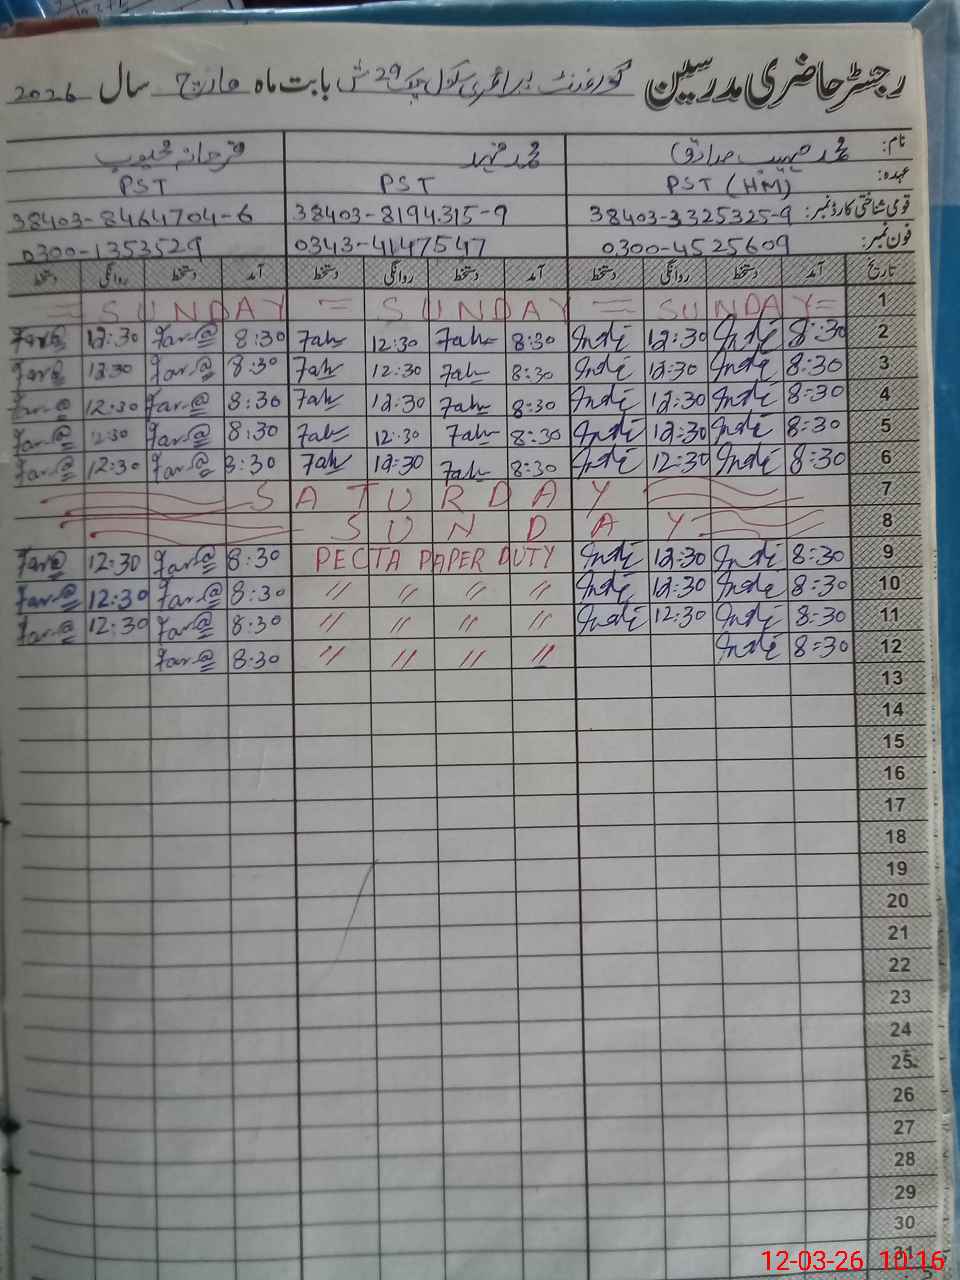 رجسٹر حاضری مدرسین گورنمنٹ پرائمری سکول چک 29 ش بابت ماہ مارچ سال 2026
نام: محمد صہیب صادق محمد فہد فرحانہ محبوب
عہدہ: PST (HM) PST PST
قومی شناختی کارڈ نمبر: 38403-3325325-9 38403-8194315-9 38403-8464704-6
فون نمبر: 0300-4525609 0343-4147547 0300-1353529
تاریخ آمد دستخط روانگی دستخط آمد دستخط روانگی دستخط آمد دستخط روانگی دستخط
1 = SUNDAY = SUNDAY = SUNDAY =
2 8:30 12:30 8:30 Fah 12:30 Fah 8:30 Far@ 12:30 Far@
3 8:30 12:30 8:30 Fah 12:30 Fah 8:30 Far@ 12:30 Far@
4 8:30 12:30 8:30 Fah 12:30 Fah 8:30 Far@ 12:30 Far@
5 8:30 12:30 8:30 Fah 12:30 Fah 8:30 Far@ 12:30 Far@
6 8:30 12:30 8:30 Fah 12:30 Fah 8:30 Far@ 12:30 Far@
7 SATURDAY
8 SUNDAY
9 8:30 12:30 PECTA PAPER DUTY 8:30 Far@ 12:30 Far@
10 8:30 12:30 // // // // 8:30 Far@ 12:30 Far@
11 8:30 12:30 // // // // 8:30 Far@ 12:30 Far@
12 8:30 // // // // 8:30 Far@
13
14
15
16
17
18
19
20
21
22
23
24
25
26
27
28
29
30
31
12-03-26 10:16